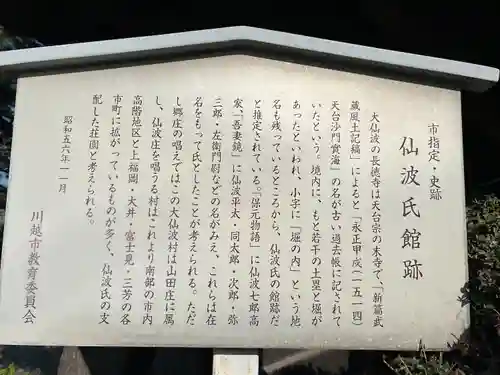 市指定・史跡
仙波氏館跡
大仙波の長徳寺は天台宗の末寺で、「新篇武
蔵風土記稿」によると「永正甲戌(一五一四)
天台沙門實海」の名が古い過去帳に記されて
いたという。境内に、もと若干の土塁と堀が
あったといわれ、小字に「堀の内」という地
名も残っているところから、仙波氏の館跡だ
と推定されている。「保元物語」に仙波七郎高
家、「吾妻鏡」に仙波平太・同太郎・次郎・弥
三郎・左衛門尉などの名がみえ、これらは在
名をもって氏としたことが考えられる。ただ
し郷庄の唱えではこの大仙波村は山田庄に属
し、仙波庄を唱うる村はこれより南部の市内
高階地区と上福岡・大井・富士見・三芳の各
市町に拡がっているものが多く、仙波氏の支
配した荘園と考えられる。
昭和五六年一一月
川越市教育委員会